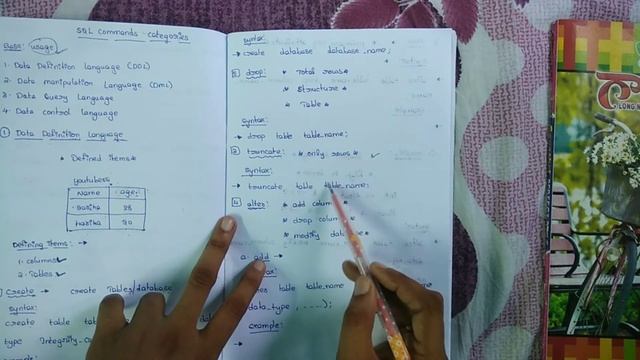 SQL commands - categories
Base: usage
1. Data Definition Language (DDL)
2. Data manipulation Language (DML)
3. Data Query Language
4. Data control language
① Data Definition Language
* Defined items*
youtubers
Name age
28
Harika 20
Defining items: →
1. columns
2. Tables
create → create Tables/database
syntax:
create table
type Integrity
syntax:
→ create database database_name;
drop: * Total rows*
* structure *
* Table *
syntax:
→ drop table table_name;
truncate: * only rows *
syntax:
→ truncate table table_name;
④ alter: * add colum
* drop colum
* modify dat
a. add →
table table_name
data_type , ----);
example:
LONG N